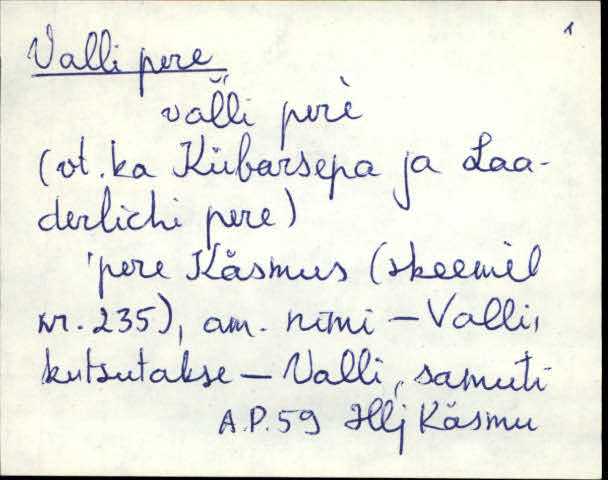 1
Valli pere
val̆l̆i perè
(vt. ka Kübarsepa ja Laa-
derlichi pere)
'pere Käsmus (skeemil
nr. 235), am. nimi – Valli,
kutsutakse – Valli, samuti
A.P. 59 Hlj Käsmu